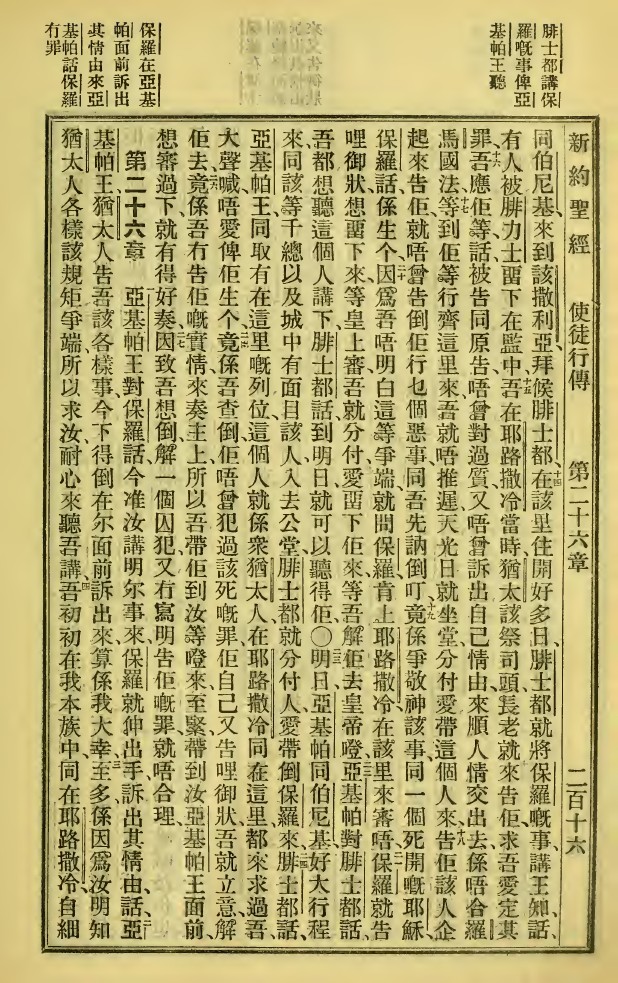 腓士都講保
羅嘅事俾亞
基帕王聽
保羅在亞基
帕面前訴出
其情由來亞
基帕話保羅
冇罪
新約聖經 使徒行傳 第二十六章 二百十六
同伯尼基來到該撒利亞拜候腓士都、十四在該里住開好多日、腓士都就將保羅嘅事講王知話、
有人被腓力士畱下在監中、十五吾在耶路撒冷當時猶太該祭司頭長老就來告佢求吾愛定其
罪、十六吾應佢等話被告同原告唔曾對過質又唔曾訴出自己情由來順人情交出去係唔合羅
馬國法、十七等到佢等行齊這里來吾就唔推遲天光日就坐堂分付愛帶這個人來、十八告佢該人企
起來告佢就唔曾告倒佢行乜個惡事、同吾先訥倒叮、十九竟係爭敬神該事同一個死開嘅耶穌、
保羅話係生个、二十因爲吾唔明白這等爭端就問保羅肯上耶路撒冷在該里來審唔、二一保羅就告
哩御狀想畱下來、等皇上審吾就分付愛畱下佢來等吾解佢去皇帝嶝、二二亞基帕對腓士都話、
吾都想聽這個人講下、腓士都話到明日就可以聽得佢、〇二三明日亞基帕同伯尼基好大行程
來、同該等千總以及城中有面目該人入去公堂、腓士都就分付人愛帶倒保羅來、二四腓士都話、
亞基帕王同取有在這里嘅列位、這個人就係衆猶太人在耶路撒冷同在這里都來求過吾、
大聲喊唔愛俾佢生个、二五竟係吾查倒佢唔曾犯過該死嘅罪、佢自己又告哩御狀吾就立意解
佢去、二六竟係吾冇告佢嘅實情來奏主上所以吾帶佢到汝等嶝來、至緊帶到汝亞基帕王面前、
想審過下就有得好奏、二七因致吾想倒解一個囚犯又冇寫明告佢嘅罪就唔合理、
第二十六章 一亞基帕王對保羅話今准汝講明尔事來、保羅就伸出手訴出其情由話、二亞
基帕王、猶太人告吾該各樣事、今下得倒在尔面前訴出來、算係我大幸、三至多係因爲汝明知
猶太人各樣該規矩爭端、所以求汝耐心來聽吾講、四吾初初在我本族中、同在耶路撒冷、自細